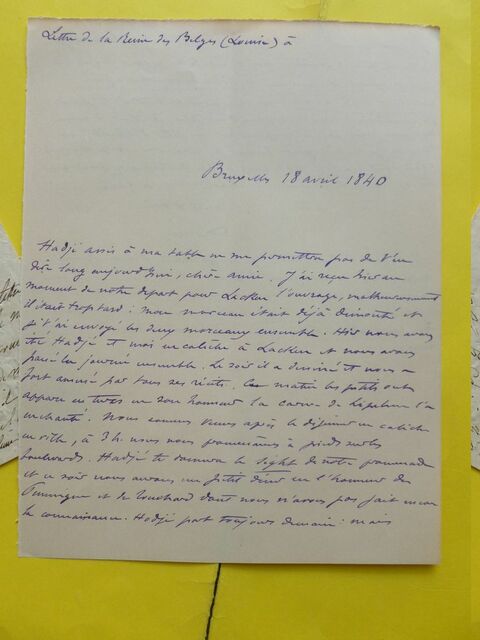 Lettre de la Reine des Belges (Louise) à
Bruxelles 18 avril 1840
Hadji assis à ma table ne me permettra pas de t'en
dire long aujourd'hui, chère amie. J'ai reçu hier au
moment de notre départ pour Laeken l'ouvrage, malheureusement
il était trop tard: mon morceau était déjà démonté et
je t'ai envoyé les deux morceaux ensemble. Hier nous avons
été Hadji et moi en calèche à Laeken et nous avons
passé la journée ensemble. Le soir il a dessiné et nous a
fort amusé par tous ses récits. Ce matin les petits ont
apparu en turcs en son honneur
enchanté. Nous sommes venus après le déjeuner en calèche
en ville, à 3 h. nous nous promènerons à pied sur les
boulevards. Hadji te donnera le sight de notre promenade
et ce soir nous avons un petit dîner en l'honneur des
et de Bouchard dont nous n'avons pas fait encore
la connaissance. Hadji part toujours demain: mais